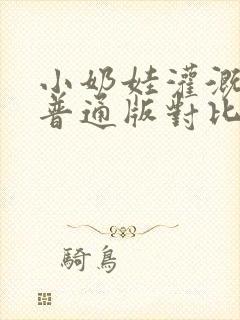 小奶娃灌溉
普通版對比
騎鳥